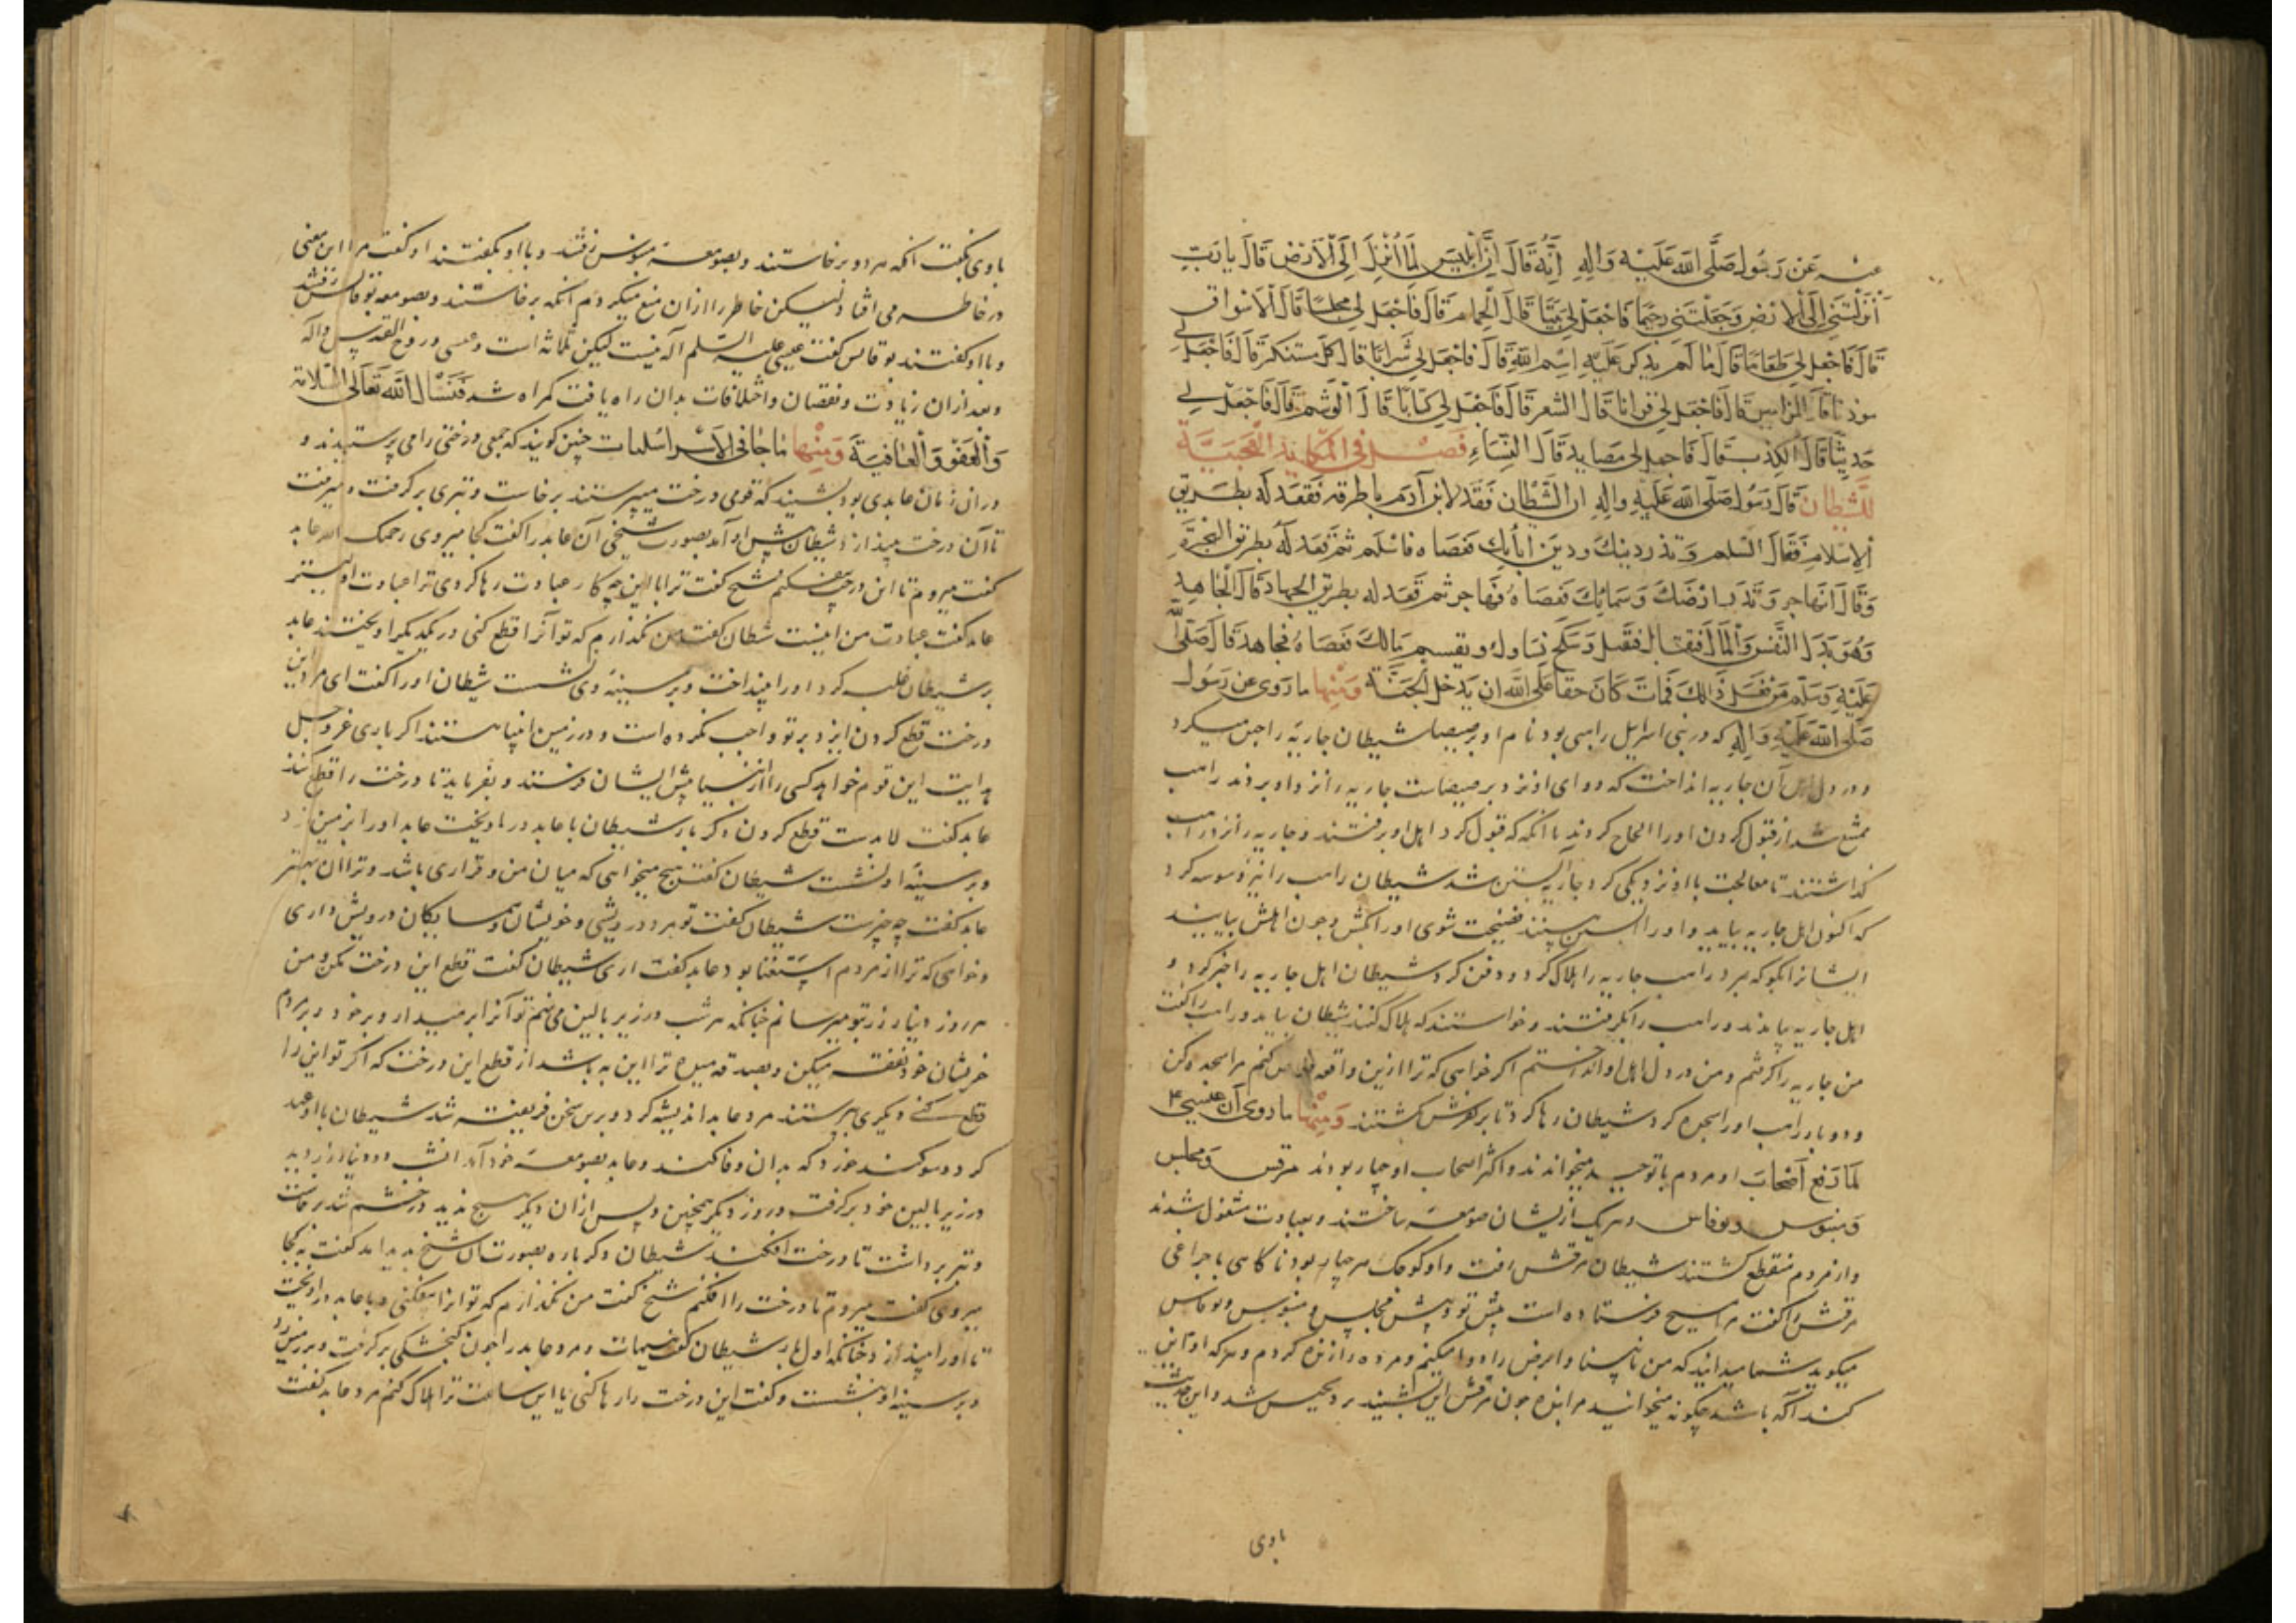 عنه عن رسول صلى الله عليه واله انه قال ان ابليس لما انزل الى الارض قال يا رب
انزلتني الى الارض وجعلتني رجيما فاجعل لي بيتا قال الحمام قال فاجعل لي مجلسا قال الاسواق
قال فاجعل لي طعاما قال ما لم يذكر عليه اسم الله قال فاجعل لي شرابا قال كل مسكر قال فاجعل لي
موذنا قال المزامير قال فاجعل لي قرانا قال الشعر قال فاجعل لي كتابا قال الوشم قال فاجعل لي
حديثا قال الكذب قال فاجعل لي مصايد قال النساء فصل في المكايد العجيبة
للشيطان قال رسول صلى الله عليه واله ان الشيطان قعد لابن آدم باطرقه فقعد له بطريق
الاسلام فقال اتسلم وتذر دينك ودين ابائك فعصاه فاسلم ثم قعد له بطريق الهجرة
وقال اتهاجر وتذر ارضك وسمائك فعصاه فهاجر ثم قعد له بطريق الجهاد قال اتجاهد
وهو بذل النفس والمال فتقاتل فتقتل وتنكح نساوك ويقسم مالك فعصاه فجاهد قال صلى الله
عليه وسلم من فعل ذلك فمات كان حقا على الله ان يدخل الجنة ومنها ما روى عن رسول
صلى الله عليه واله كه در بنى اسرايل راهبى بود نام او برصيصا شيطان جاريه را حبس ميكرد
ودر دل اهل آن جاريه انداخت كه دواى او نزد برصيصاست جاريه را نزد او بردند راهب
ممتنع شد از قبول كردن او را الحاح كردند تا انكه قبول كرد اهل او برفتند و جاريه را نزد راهب
كذاشتند تا معالجت با او نزديكى كرد جاريه آبستن شد شيطان راهب را نيز وسوسه كرد
كه اكنون اهل جاريه بيايد و او را آبستن بينند فضيحت شوى او را بكش و چون اهلش بيايند
ايشانرا بكو كه بمرد راهب جاريه را هلاك كرد و دفن كرد شيطان اهل جاريه را خبر كرد و
اهل جاريه بيامدند و راهب را بكرفتند و خواستند كه هلاك كنند شيطان بيامد و راهب را كفت
من جاريه را كرفتم و من در دل اهل او انداختم اكر خواهى كه ترا ازين واقعه خلاص كنم مرا سجده كن
ودوبار راهب او را سجده كرد شيطان رها كرد تا بر كفرش كشتند ومنها ما روى ان عيسى ع
لما رفع اصحاب او مردم با توحيد ميخواندند و اكثر اصحاب او چهار بودند مرقس و مجلس
و منبوس و بوقاس و هر يك از ايشان صومعه ساختند و بعبادت مشغول شدند
واز مردم منقطع كشتند شيطان مرقس رفت و او كوچك هر چهار بود ناكاهى با چراغى
مرقس را كفت مرا مسيح فرستاده است پيش تو و پيش مجلس و منبوس و بوقاس
ميكويد شما ميدانيد كه من نابينا و ابرص را دوا ميكنم و مرده را زنده كردم و هركه او اين
كند آله باشد چكونه ميخوانيد مرا بنده چون مرقس اين بشنيد بر دحيس شد و اين حديث
باوى
باوى بكفت انكه هر دو برخاستند و بصومعه منبوس رفتند و با او بكفتند او كفت مرا اين معنى
در خاطر مى افتاد ليكن خاطر را ازان منع ميكردم انكه برخاستند و بصومعه بوقاس رفتند
وبا او كفتند بوقاس كفت عيسى عليه السلم آله نيست ليكن ثلاثه است و عيسى و روح القدس و آله
وبعد ازان زيادت و نقصان و اختلافات بدان راه يافت كمراه شد فنسال الله تعالى السلامة
والعفو والعافية ومنها ما جا فى الاسرائيليات چنين كويند كه جمعى درختى را مى پرستيدند و
دران زمان عابدى بود بشنيد كه قومى درخت ميپرستند برخاست و تبرى بر كرفت و ميرفت
تا آن درخت بيندازد شيطان پيش او آمد بصورت شيخى آن عابد را كفت كجا ميروى رحمك الله عابد
كفت ميروم تا اين درخت بيفكنم شيخ كفت ترا با اين چه كار عبادت رها كردى ترا عبادت اوليتر
عابد كفت عبادت من اينست شيطان كفت من نكذارم كه تو آنرا قطع كنى در يكديكر اويختند عابد
بر شيطان غلبه كرد او را بينداخت و بر سينه وى نشست شيطان او را كفت اى مرد اين
درخت قطع كردن ايزد بر تو واجب نكرده است و در زمين انبيا هستند اكر بارى عز و جل
هدايت اين قوم خواهد كسى را از انبيا پيش ايشان فرستند و بفرمايد تا درخت را قطع كنند
عابد كفت لابدست قطع كردن دكر بار شيطان با عابد در اويخت عابد او را بر زمين زد
وبر سينه او نشست شيطان كفت هيچ ميخواهى كه ميان من و قرارى باشد و ترا ان بهتر
عابد كفت چه چيزست شيطان كفت تو مرد درويشى و خويشان و همسايكان درويش دارى
وخواهى كه ترا از مردم استغنا بود عابد كفت ارى شيطان كفت قطع اين درخت مكن و من
هر روز دينار زر بتو ميرسانم چنانكه هر شب در زير بالين مى نهم تو آنرا بر ميدار و بر خود و بر مردم
خويشان خود نفقه ميكن و بصدقه ميده ترا اين به باشد از قطع اين درخت كه اكر تو اين را
قطع كنى ديكرى بپرستند مرد عابد انديشه كرد و برين سخن فريفته شد شيطان با او عهد
كرد و سوكند خورد كه بدان وفا كند و عابد بصومعه خود آمد انشب دو دينار زر ديد
در زير بالين خود بركرفت و روز ديكر همچنين و پس ازان ديكر هيچ نديد در خشم شد برخاست
وتبر برداشت تا درخت افكند شيطان دكر باره بصورت ان شيخ پديد امد كفت به كجا
ميروى كفت ميروم تا درخت را افكنم شيخ كفت من نكذارم كه تو انرا بيفكنى و با عابد در اويخت
تا او را بيندازد چنانكه اول بار شيطان كفت هيهات و مرد عابد را چون كنجشكى بر كرفت و بر زمين زد
وبر سينه او بنشست و كفت اين درخت را رها كنى يا اين ساعت ترا هلاك كنم مرد عابد كفت